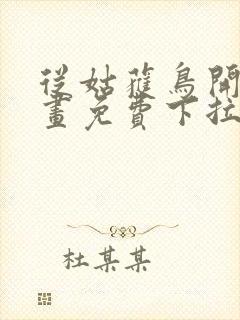 從姑蘿鳥開
畫免費下拉
杜某某